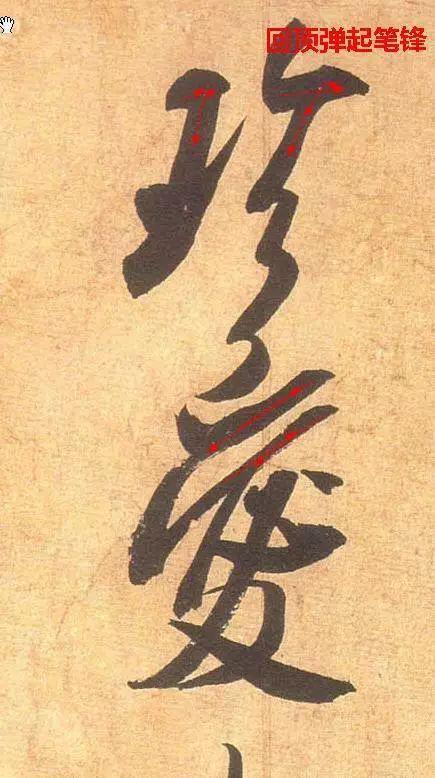 回顶弹起笔锋
珍爱